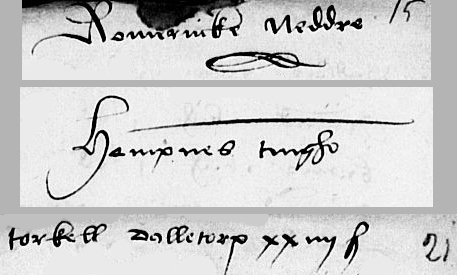 Ronnernike Neddre 15
Hampnes tingho
torkell Dalletorp xxiiij β 21